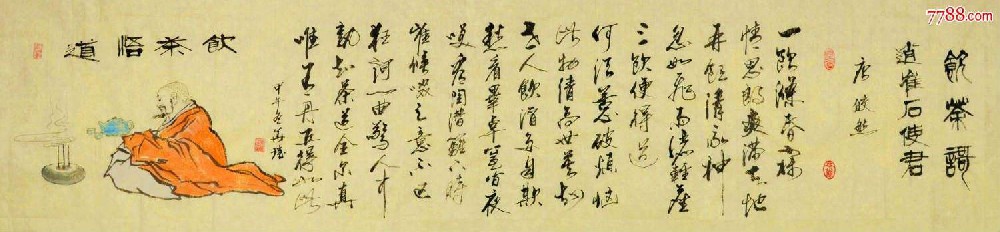 7788.com
飲茶謌
誚崔石使君
唐 皎然
一飲滌昏寐
情思朗爽滿天地
再飲清我神
忽如飛雨灑輕塵
三飲便得道
何須苦心破煩惱
此物清高世莫知
世人飲酒多自欺
愁看畢卓甕間夜
笑向陶潛籬下時
崔侯啜之意不已
狂謌一曲驚人耳
孰知茶道全爾真
唯有丹丘得如此
飲茶悟道
甲午冬